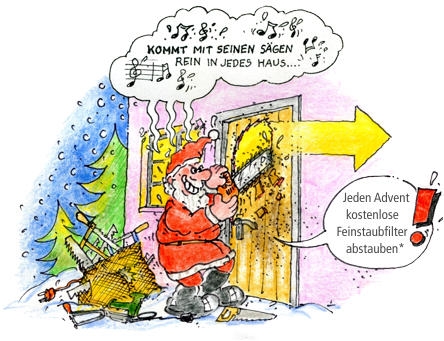 KOMMT MIT SEINEN SÄGEN
REIN IN JEDES HAUS....
Jeden Advent
kostenlose
Feinstaubfilter
abstauben*